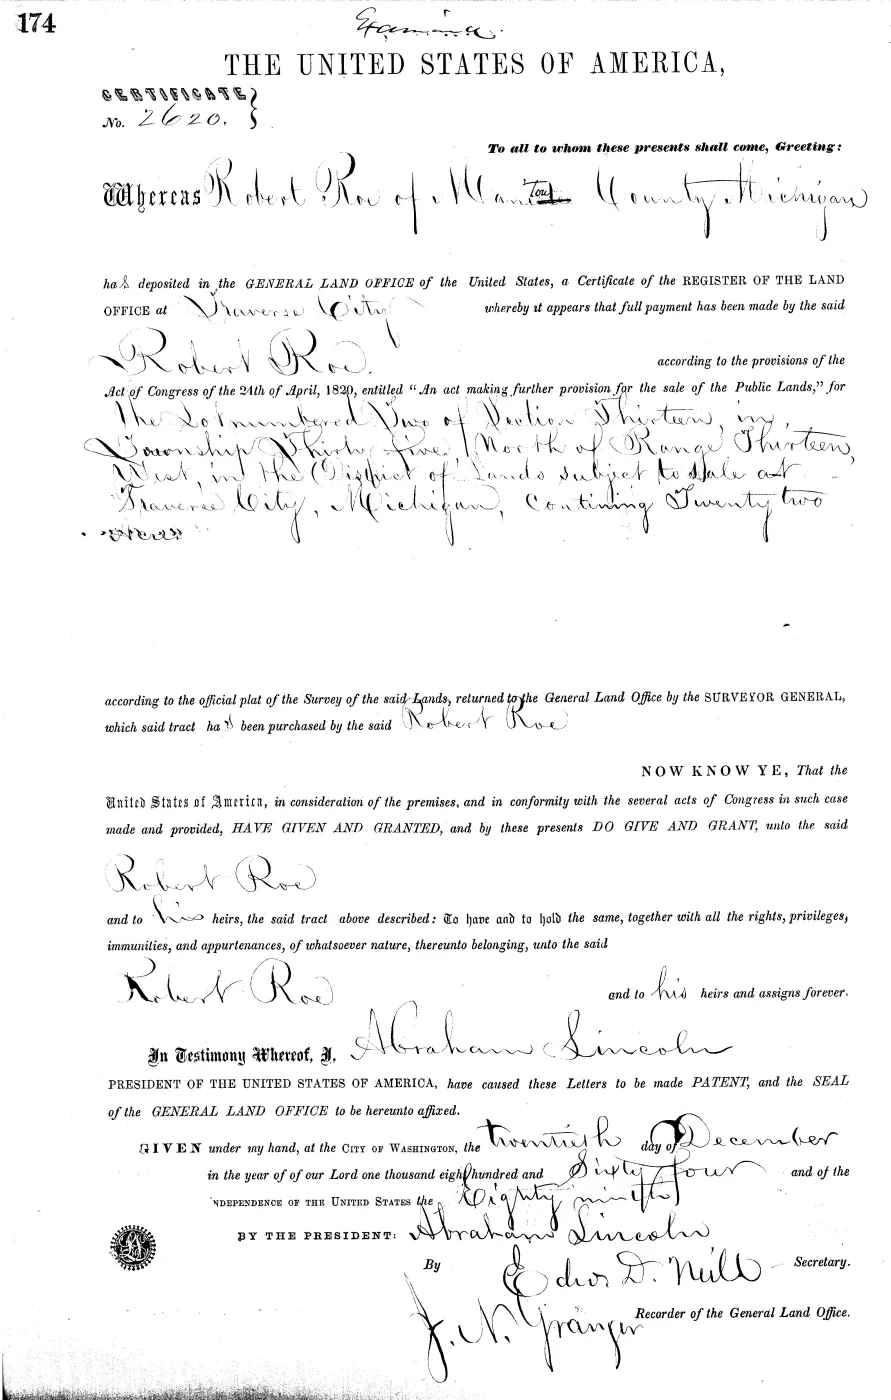 174
Examined.
THE UNITED STATES OF AMERICA,
CERTIFICATE
No. 2620.
To all to whom these presents shall come, Greeting:
Whereas Robert Roe of Manitou County Michigan
has deposited in the GENERAL LAND OFFICE of the United States, a Certificate of the REGISTER OF THE LAND
OFFICE at Traverse City whereby it appears that full payment has been made by the said
Robert Roe. according to the provisions of the
Act of Congress of the 24th of April, 1820, entitled “An act making further provision for the sale of the Public Lands,” for
The Lot numbered Two of Section Thirteen, in
Township Thirty five, North of Range Thirteen,
West, in the District of Lands subject to sale at
Traverse City, Michigan, Contining Twenty two
Acres
according to the official plat of the Survey of the said Lands, returned to the General Land Office by the SURVEYOR GENERAL,
which said tract has been purchased by the said Robert Roe
NOW KNOW YE, That the
United States of America, in consideration of the premises, and in conformity with the several acts of Congress in such case
made and provided, HAVE GIVEN AND GRANTED, and by these presents DO GIVE AND GRANT, unto the said
Robert Roe
and to his heirs, the said tract above described: To have and to hold the same, together with all the rights, privileges,
immunities, and appurtenances, of whatsoever nature, thereunto belonging, unto the said
Robert Roe and to his heirs and assigns forever.
In Testimony Whereof, I, Abraham Lincoln
PRESIDENT OF THE UNITED STATES OF AMERICA, have caused these Letters to be made PATENT, and the SEAL
of the GENERAL LAND OFFICE to be hereunto affixed.
GIVEN under my hand, at the CITY OF WASHINGTON, the twentieth day of December
in the year of of our Lord one thousand eight hundred and Sixty four and of the
NDEPENDENCE OF THE UNITED STATES the Eighty ninth
BY THE PRESIDENT: Abraham Lincoln
By Edw. D. Neill Secretary.
J. N. Granger Recorder of the General Land Office.